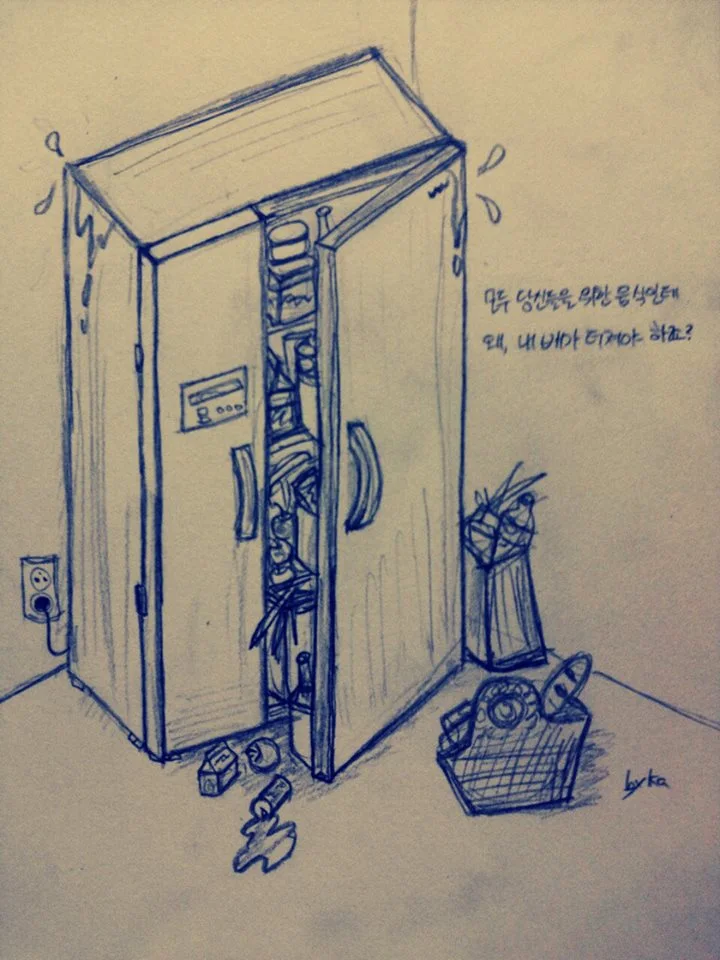 모두 당신들을 위한 음식인데
왜, 내 배가 터져야 하죠?
by ka